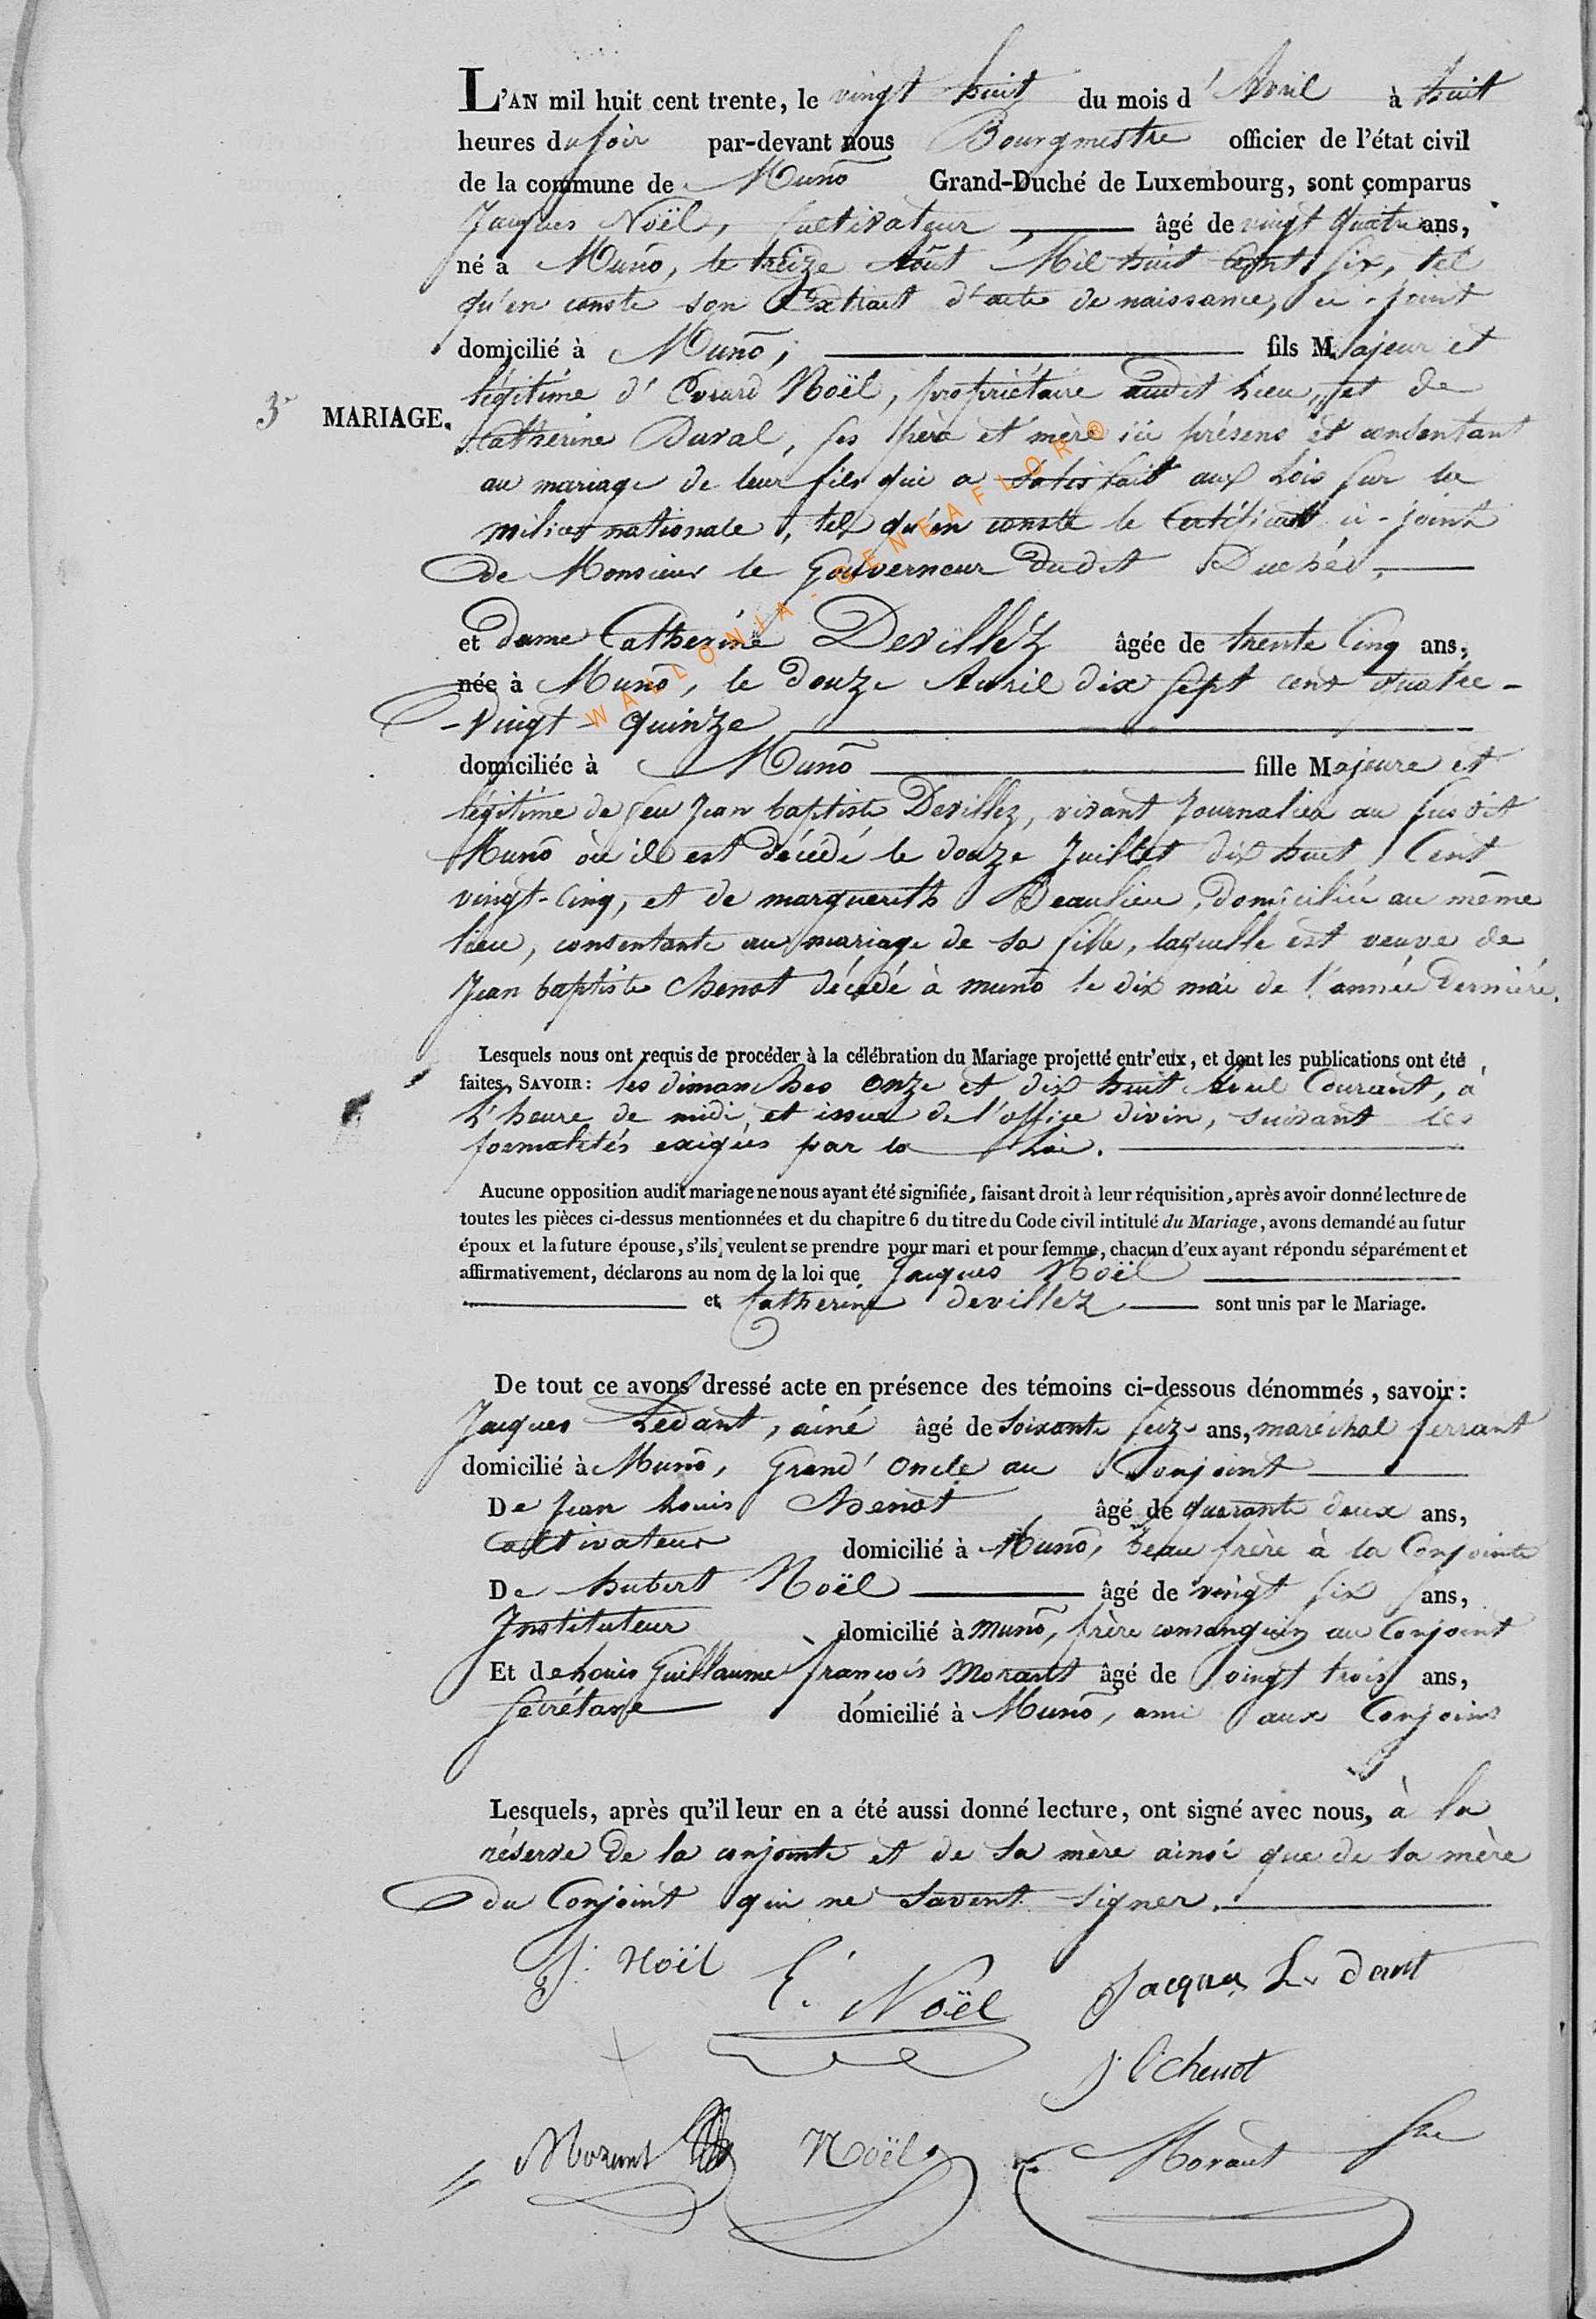 L'AN mil huit cent trente, le vingt huit du mois d'Avril à huit
heures du soir par-devant nous Bourgmestre officier de l'état civil
de la commune de Muno Grand-Duché de Luxembourg, sont comparus
Jacques Noël, Cultivateur, âgé de vingt quatre ans,
né à Muno, le treize Août Mil huit Cent Six, tel
qu'en conste son Extrait d'acte de naissance, ci-joint
domicilié à Muno, fils Majeur et
légitime d'Evrard Noël, propriétaire audit lieu, et de
3e MARIAGE.
Catherine Duval, ses père et mère ici présens et consentant
au mariage de leur fils qui a satisfait aux Lois sur la
milice nationale, tel qu'en conste le Certificat ci-joint
de Monsieur le Gouverneur dudit Duché,
WALLONIA-GENEAFLOR®
et dame Catherine Devillez âgée de trente Cinq ans,
née à Muno, le douze Avril dix sept cent quatre-
-vingt-quinze
domiciliée à Muno fille Majeure et
légitime de feu Jean baptiste Devillez, vivant Journalier au susdit
Muno où il est décédé le douze Juillet dix huit Cent
vingt-Cinq, et de marguerith Beaulieu, domiciliée au même
lieu, consentante au mariage de sa fille, laquelle est veuve de
Jean baptiste Chenot décédé à muno le dix mai de l'année dernière.
Lesquels nous ont requis de procéder à la célébration du Mariage projetté entr'eux, et dont les publications ont été
faites, SAVOIR: les dimanches onze et dix huit Avril Courant, à
L'heure de midi et issue de l'office divin, suivant les
formalités exigées par la Loi.
Aucune opposition audit mariage ne nous ayant été signifiée, faisant droit à leur réquisition, après avoir donné lecture de
toutes les pièces ci-dessus mentionnées et du chapitre 6 du titre du Code civil intitulé du Mariage, avons demandé au futur
époux et la future épouse, s'ils veulent se prendre pour mari et pour femme, chacun d'eux ayant répondu séparément et
affirmativement, déclarons au nom de la loi que Jacques Noël
et Catherine devillez sont unis par le Mariage.
De tout ce avons dressé acte en présence des témoins ci-dessous dénommés, savoir:
Jacques Ledant, ainé âgé de soixante seize ans, maréchal ferrant
domicilié à Muno, Grand' Oncle au Conjoint
De Jean Louis Chenot, âgé de quarante deux ans,
Cultivateur domicilié à Muno, beau frère à la Conjointe
De hubert Noël âgé de vingt six ans,
Instituteur domicilié à muno, frère consanguin au Conjoint
Et de Louis Guillaume françois Morant âgé de vingt trois ans,
Secrétaire domicilié à Muno, ami aux Conjoins
Lesquels, après qu'il leur en a été aussi donné lecture, ont signé avec nous, à la
réserve de la conjointe et de sa mère ainsi que de la mère
du Conjoint qui ne savent signer.
J: Noël E. Noël Jacques Le dant
J l Chenot
Morant Noël Morant